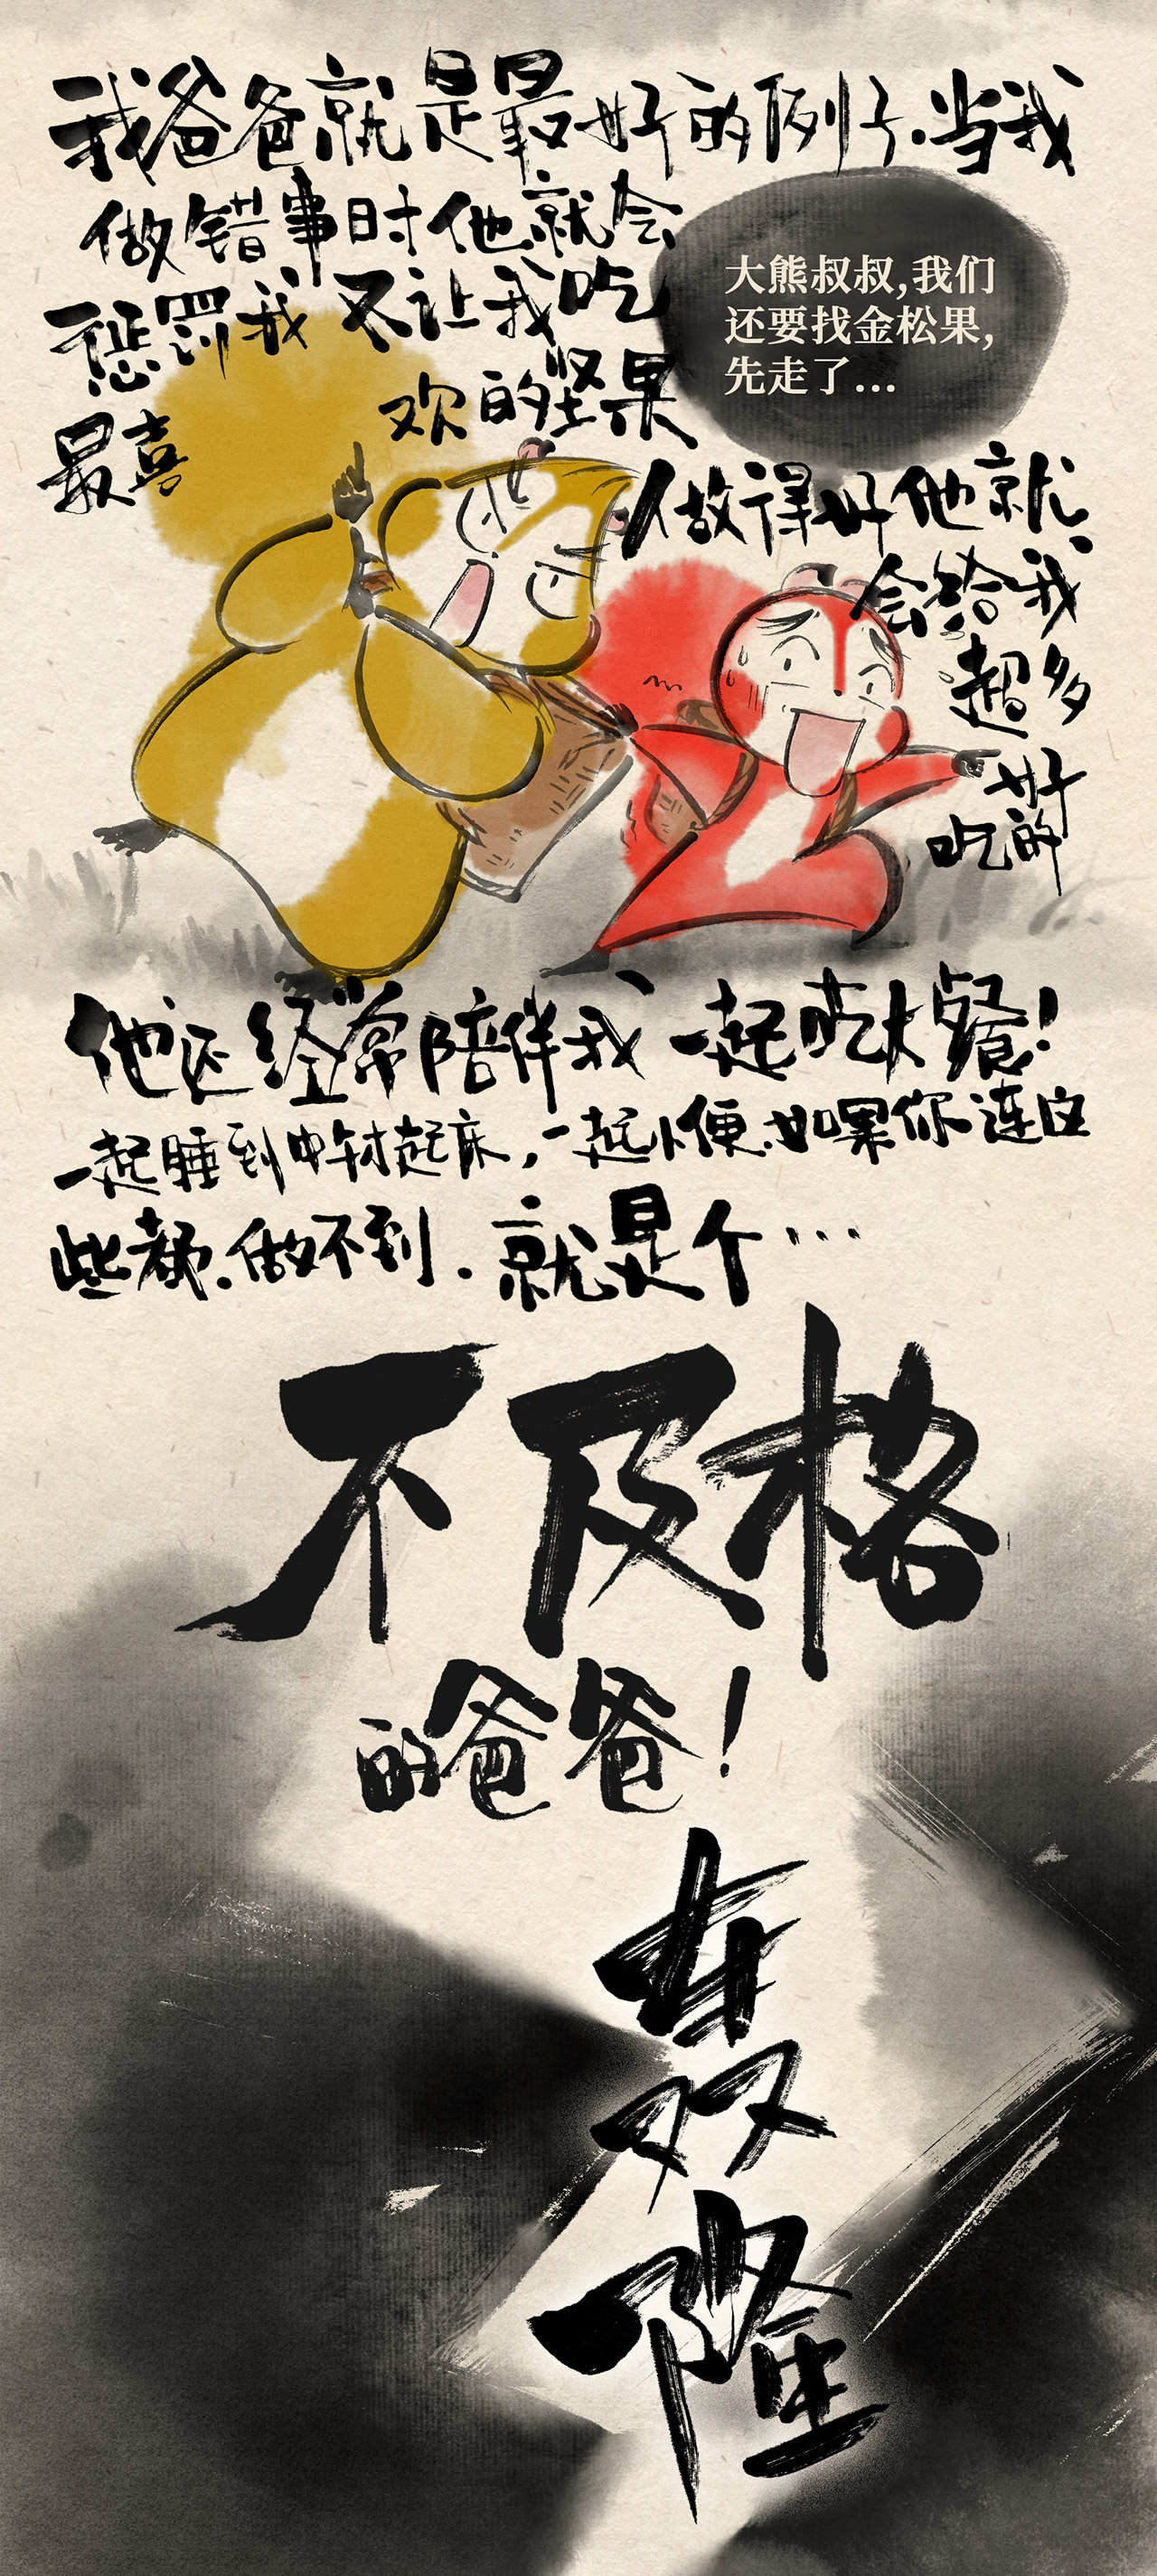 我爸爸就是最好的例子.当我
做错事时他就会
惩罚我不让我吃
最喜欢的坚果
大熊叔叔,我们
还要找金松果,
先走了...
做得好他就
会给我
超多
好
吃的
他还经常陪伴我一起吃大餐!
一起睡到中午才起床,一起小便.如果你连这
些都.做不到.就是个...
不及格
的爸爸!
轰
隆